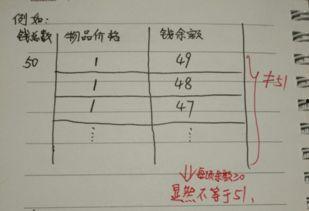 例如:
钱总数 物品价格 钱余额
50 1 49
1 48
1 47
⋮ ⋮
≠51
每项余数≥0
显然不等于51.